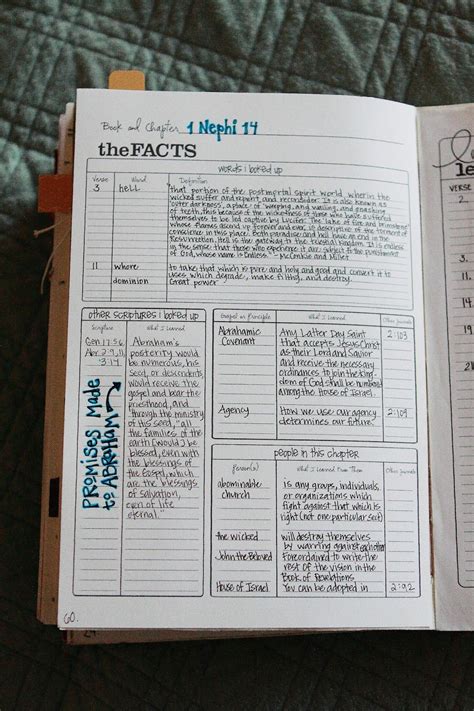 Book and Chapter 1 Nephi 14
the FACTS
words I looked up
Verse Word Definition
3 hell that portion of the postmortal spirit world, wherein the
wicked suffer and repent, and reconsider. It is also known as
"outer darkness," a place of "weeping, and wailing, and gnashing
of teeth, this because of the wickedness of those who have suffered
themselves to be led captive by Lucifer. The "lake of fire and brimstone"
whose flames ascend up forever and ever, is descriptive of the torment of
conscience in this place. Both paradise and hell have an end in the
Resurrection. Hell is the gateway to the telestial kingdom. It is endless
in the sense that those who experience it are subject to the punishment
of God, whose name is Endless." - McConkie and Millet
11 whore to take that which is pure and holy and good and convert it to
uses which degrade, make filthy, and destroy.
dominion Great power
other scriptures I looked up
Scripture What I Learned
Gen 17:5-6 Abraham's
Abr 2:9, 11,
3:14
posterity would
be numerous, his
seed, or descendents,
would receive the
gospel and bear the
priesthood, and
"through the ministry
of his seed, "all
the families of the
earth [would] be
blessed, even with
the blessings of
the Gospel, which
are the blessings
of salvation,
even of life
eternal."
PROMISES made
to ABRAHAM
Gospel or Principle What I Learned Other journals
Abrahamic Any Latter Day Saint 2:103
Covenant that accepts Jesus Christ
as their Lord and Savior
and receive the necessary
ordinances to join the King-
dom of God shall be numbered
among the House of Israel.
Agency How we use our agency 2:109
determines our future.
people in this chapter
Person(s) What I Learned From Them Other journals
abominable is any groups, individuals,
church or organizations which
fight against that which is
right (not one particular sect)
the wicked will destroy themselves
by warring against each other
John the Beloved Foreordained to write the
rest of the vision in the
Book of Revelations
House of Israel You can be adopted in 2:92
60.
VERSE
2.